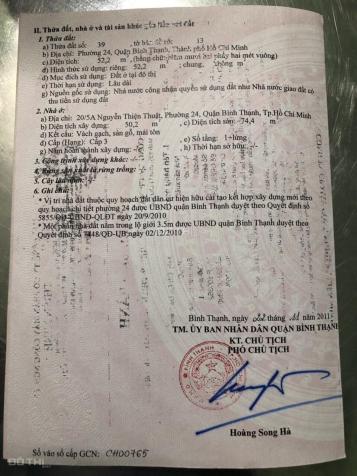 II. Thửa đất, nhà ở và tài sản khác gắn liền với đất
1. Thửa đất:
a) Thửa đất số: 39 , tờ bản đồ số: 13
b) Địa chỉ: Phường 24, Quận Bình Thạnh, Thành phố Hồ Chí Minh
c) Diện tích: 52,2 m², (bằng chữ: năm mươi hai phẩy hai mét vuông)
d) Hình thức sử dụng: riêng: 52,2 m², chung: không m²
đ) Mục đích sử dụng: Đất ở tại đô thị
e) Thời hạn sử dụng: Lâu dài
g) Nguồn gốc sử dụng: Nhà nước công nhận quyền sử dụng đất như Nhà nước giao đất có
thu tiền sử dụng đất
2. Nhà ở:
a) Địa chỉ: 20/5A Nguyễn Thiện Thuật, Phường 24, Quận Bình Thạnh, Tp.Hồ Chí Minh
b) Diện tích xây dựng: 50,2 m², c) Diện tích sàn: 74,4 m²
d) Kết cấu: Vách gạch, sàn gỗ, mái tôn
đ) Cấp (Hạng): Cấp 3 e) Số tầng: 1+lửng
g) Năm hoàn thành xây dựng: h) Thời hạn sở hữu: -/-
3. Công trình xây dựng khác: -/-
4. Rừng sản xuất là rừng trồng: -/-
5. Cây lâu năm: -/-
6. Ghi chú:
* Vị trí nhà đất thuộc quy hoạch đất dân cư hiện hữu cải tạo kết hợp xây dựng mới theo
quy hoạch chi tiết phường 24 được UBND quận Bình Thạnh duyệt theo Quyết định số
5855/QĐ-UBND-QLĐT ngày 20/9/2010
* Một phần nhà đất nằm trong lộ giới 3.5m được UBND quận Bình Thạnh duyệt theo
Quyết định số 7448/QĐ-UB ngày 02/12/2010
Bình Thạnh, ngày tháng năm 2011
TM. ỦY BAN NHÂN DÂN QUẬN BÌNH THẠNH
KT. CHỦ TỊCH
PHÓ CHỦ TỊCH
Hoàng Song Hà
Số vào sổ cấp GCN: CH00765